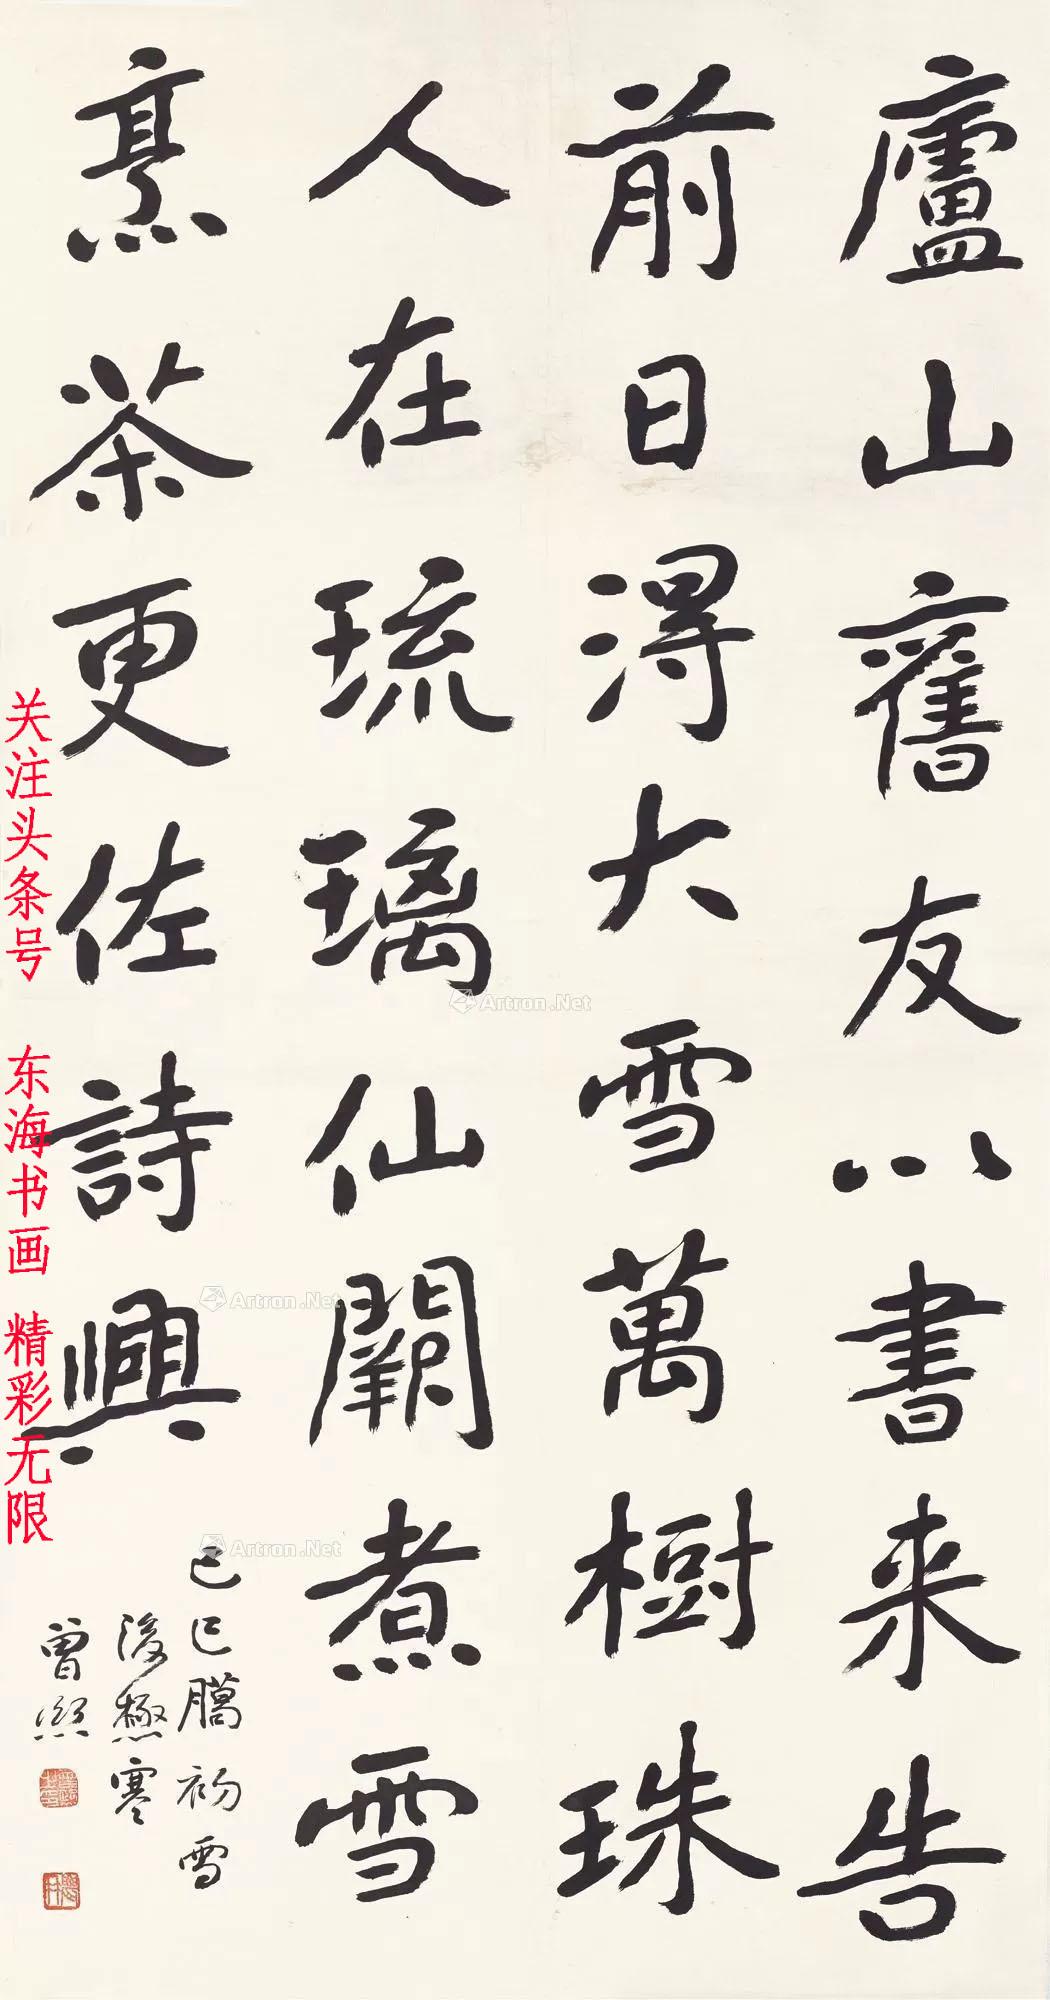 廬山舊友以書来告
前日得大雪萬樹珠
人在琉璃仙闕煮雪
烹茶更佐詩興
己巳臘初雪
後極寒
曾熙
关注头条号 东海书画 精彩无限
Artron.Net
Artron.Net
Artron.Net